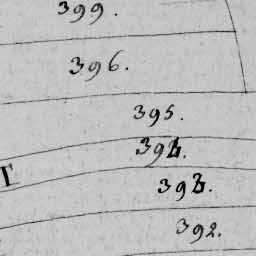 399.
396.
395.
394.
T
393.
392.